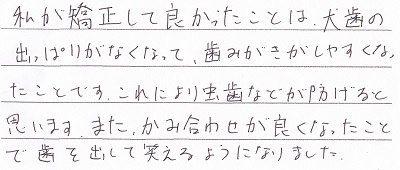 私が矯正して良かったことは、犬歯の
出っぱりがなくなって、歯みがきがしやすくなっ
たことです。これにより虫歯などが防げると
思います。また、かみ合わせが良くなったこと
で歯を出して笑えるようになりました。